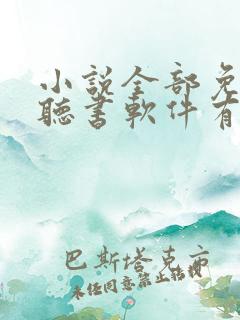 小説全部免
聽書軟件有
巴斯塔克亦
未經同意禁止轉載